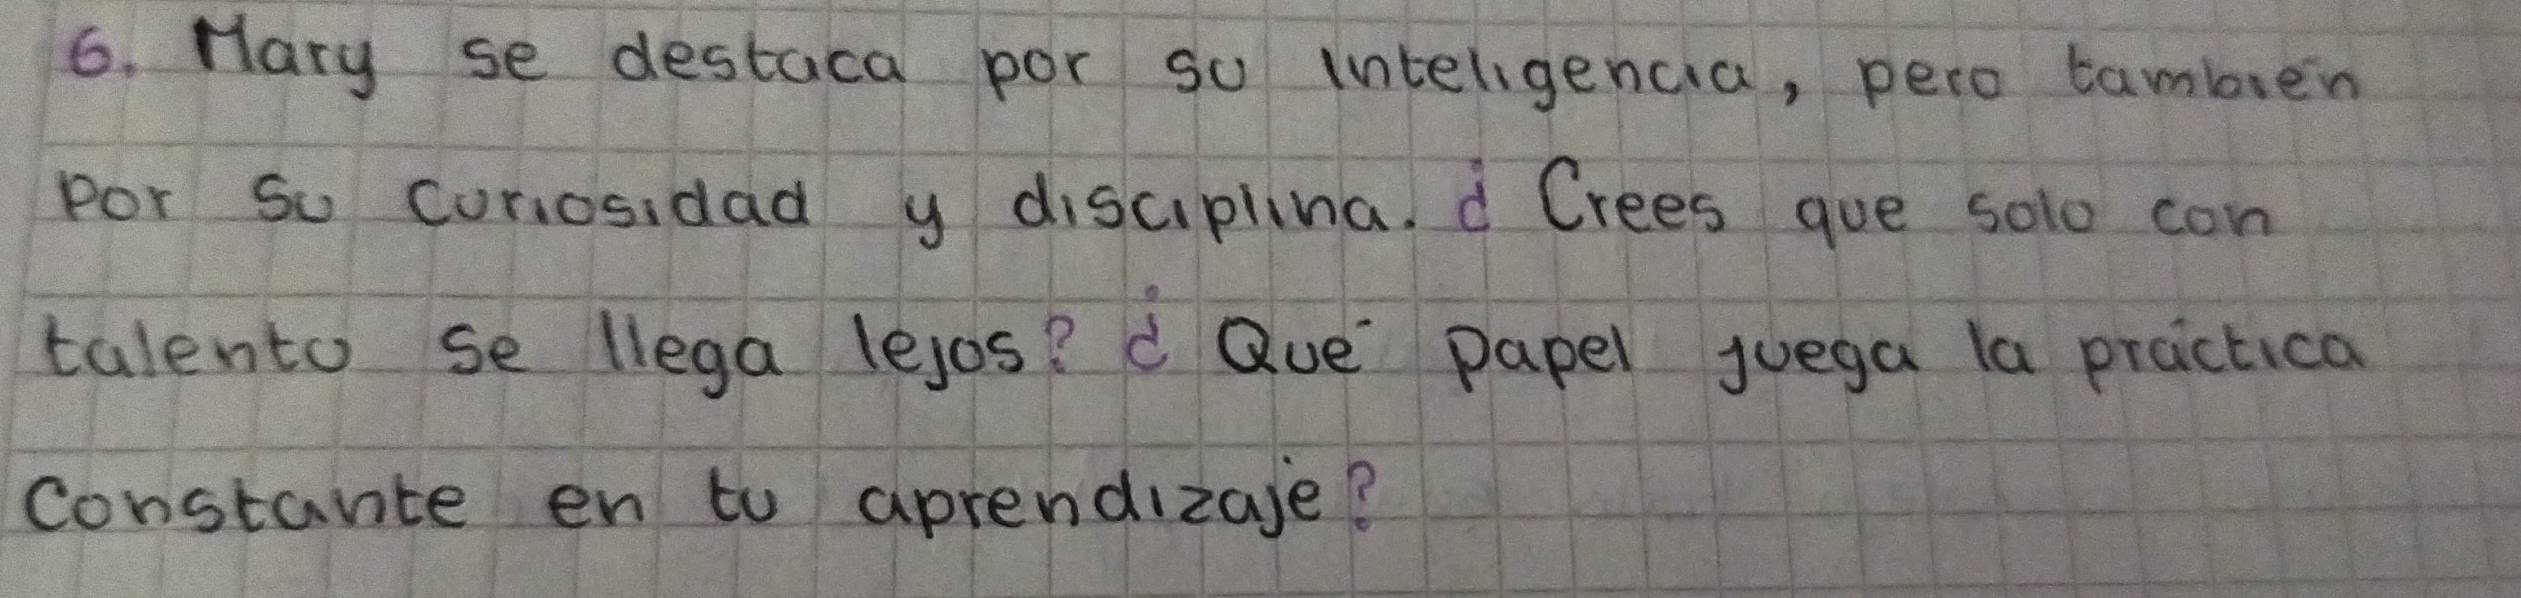 6. Mary se destaca por su inteligencia, pero también
por su curiosidad y disciplina. ¿Crees que solo con
talento se llega lejos? ¿Qué papel juega la práctica
constante en tu aprendizaje?